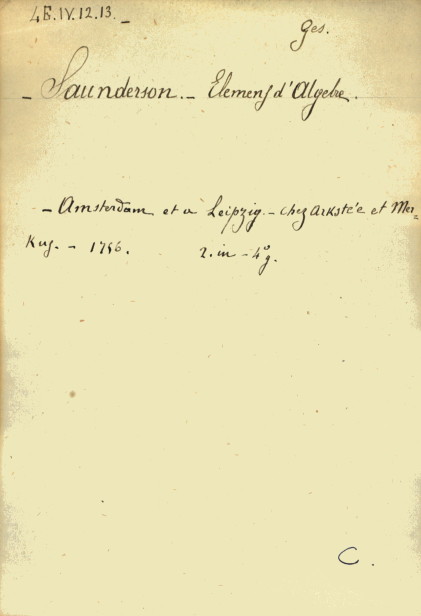 4E.IV.12.13._
Ges.
- Saunderson. - Elemens d'Algebre.
- Amsterdam et a Leipzig. - chez Arkstée et Mer=
Kus. - 1756. 2. in - 4° g.
C.